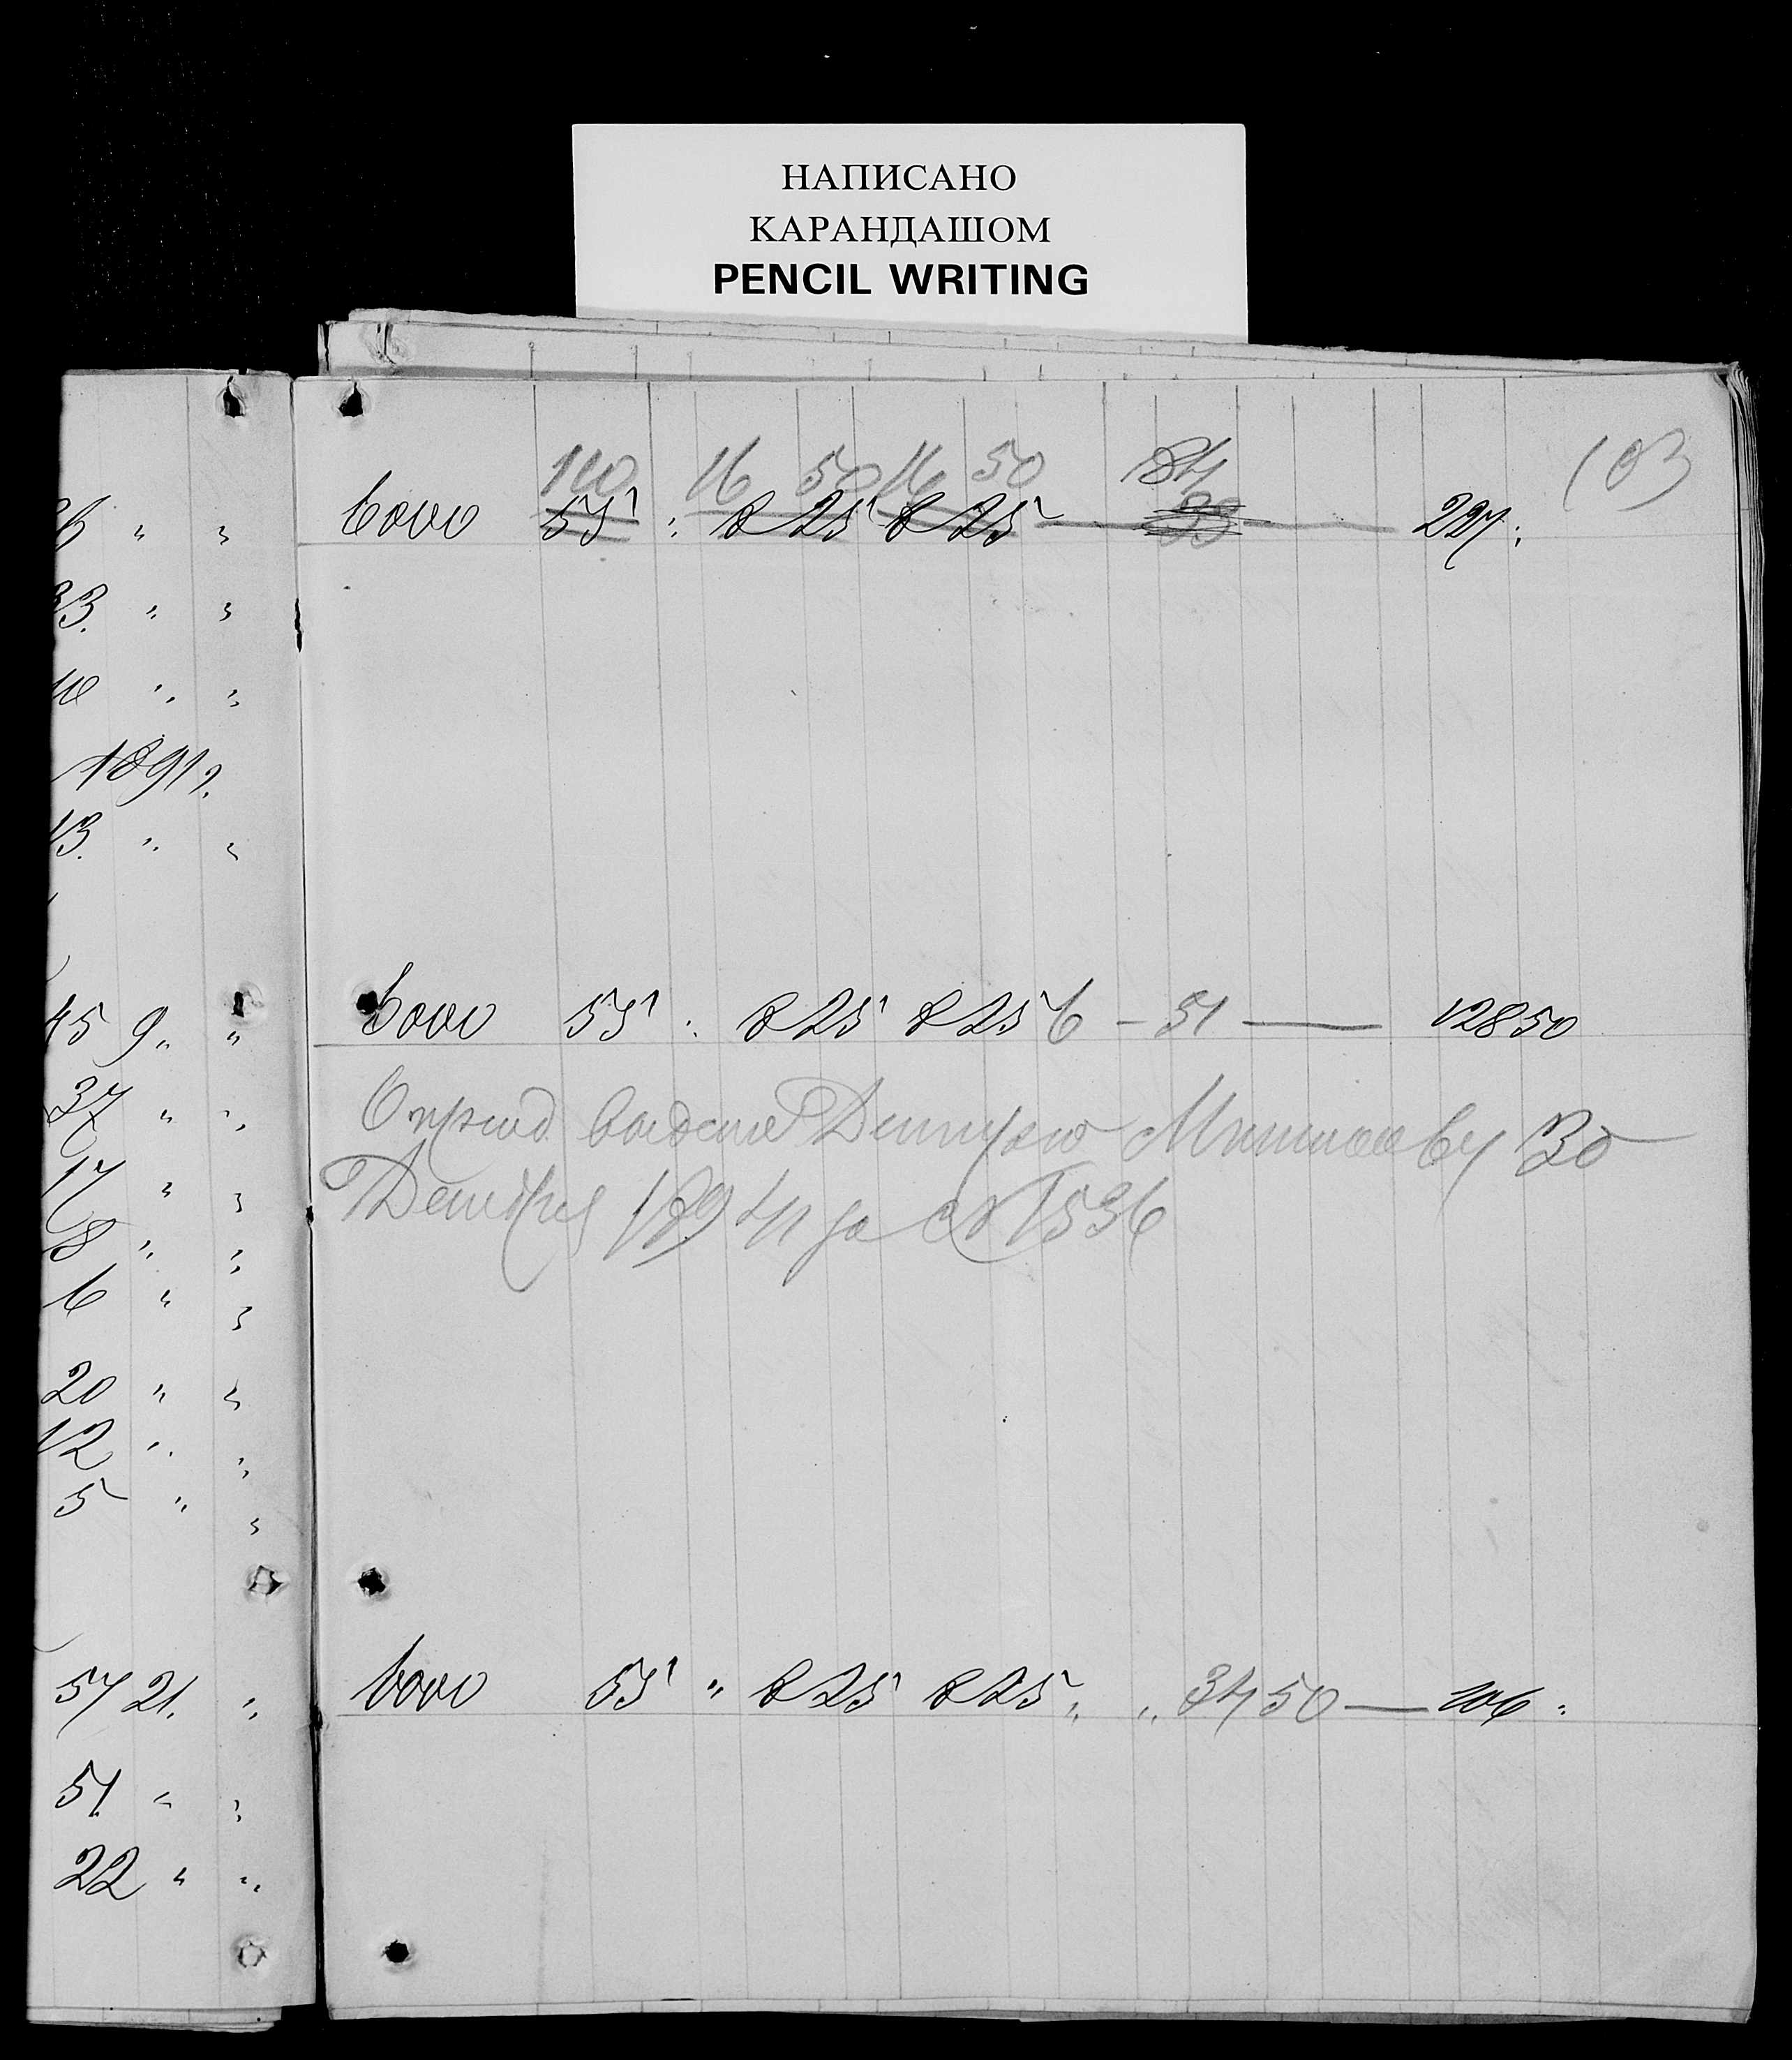 НАПИСАНО
КАРАНДАШОМ
PENCIL WRITING
103
110 16 50 16 50 84
6000 55 : 8 25 8 25 — 33 — 227 :
33. " "
10 " "
1891 г.
13. " "
45 9 " "
6000 55 : 8 25 8 25 6 — 51 — 128 50
37 " "
Дмитрию 30
17 " "
Декабря 1894 г за № 1536
18 " "
6 " "
20 " "
12 " "
5 " "
57 21. "
6000 55 " 8 25 8 25 " " 34 50 — 106 :
51. " "
22 " "